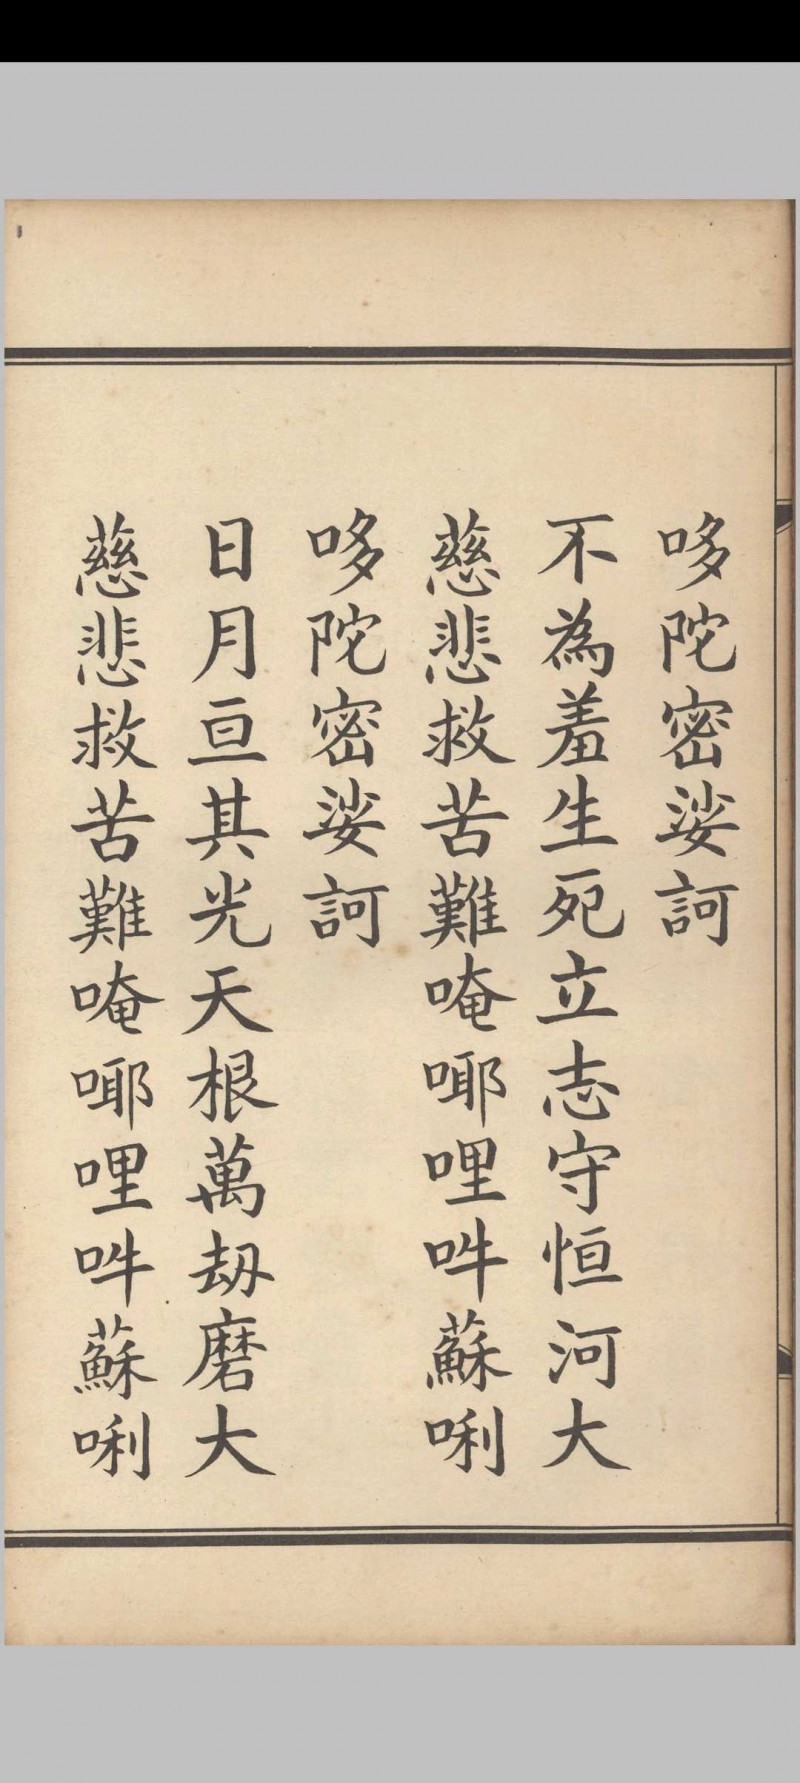 哆陀密娑訶
不為羞生死立志守恒河大
慈悲救苦難唵哪哩吽蘇唎
哆陀密娑訶
日月亘其光天根萬劫磨大
慈悲救苦難唵哪哩吽蘇唎